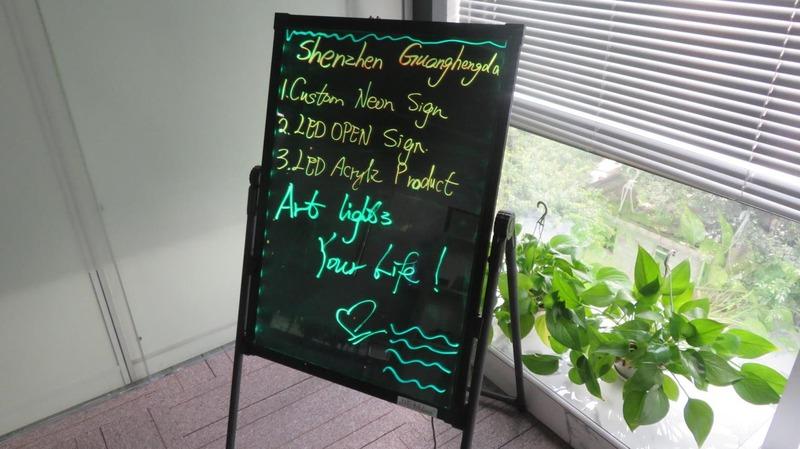 Shenzhen Guanghengda
1. Custom Neon Sign
2. LED OPEN Sign.
3. LED Acrylic Product
Art lights
Your Life!